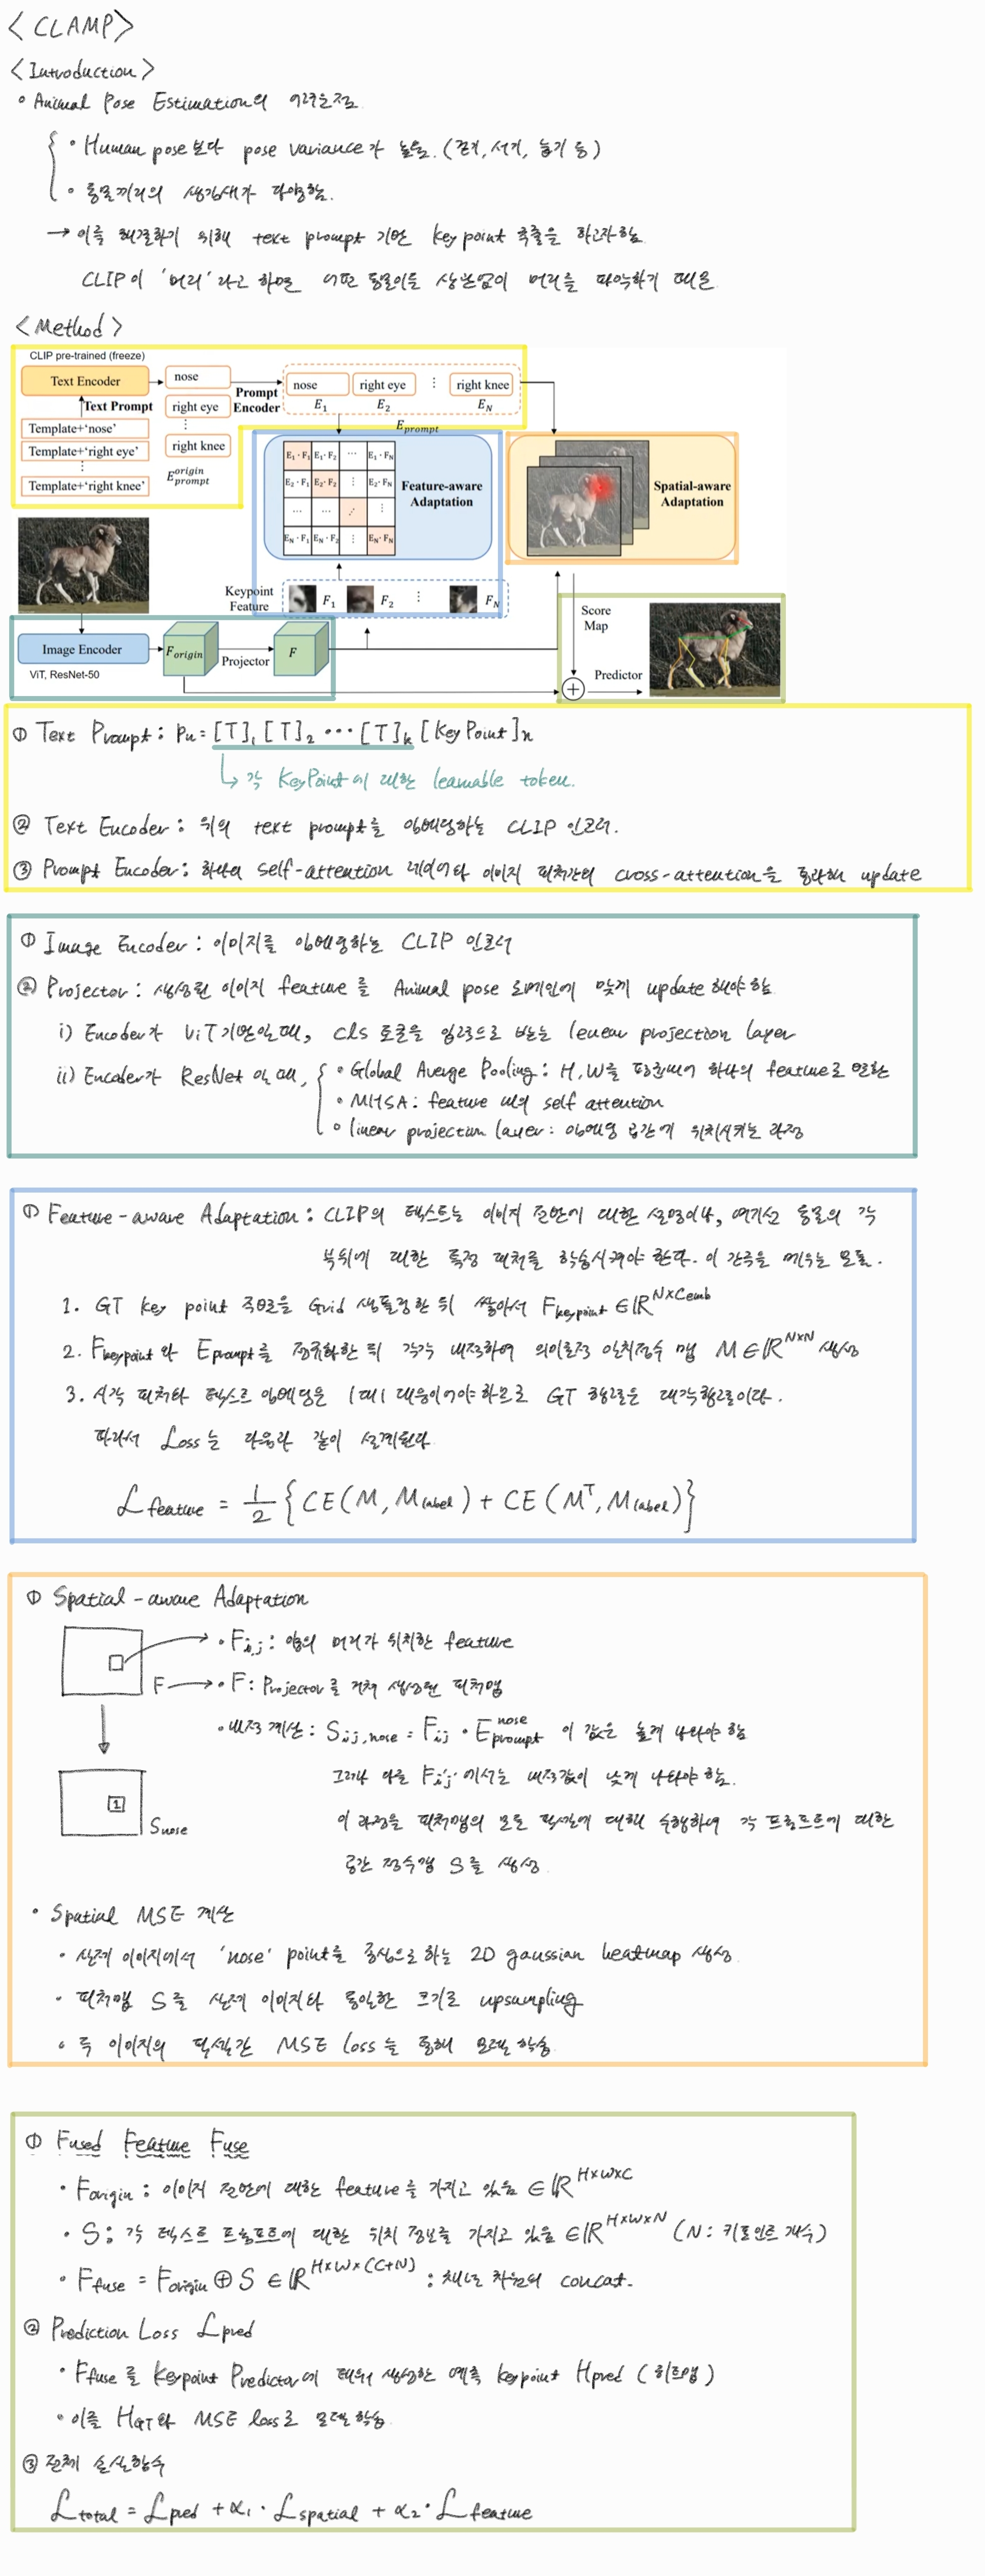 <CLAMP>
<Introduction>
• Animal Pose Estimation의 어려운점
• Human pose 보다 pose variance가 높음. (걷기, 서기, 눕기 등)
• 동물끼리의 생김새가 다양함.
→ 이를 해결하기 위해 text prompt 기반 key point 추출을 하고자함.
CLIP이 '머리'라고 하면 어떤 동물이든 상관없이 머리를 파악하기 때문
<Method>
CLIP pre-trained (freeze)
Text Encoder
nose
Prompt Encoder
nose
right eye
⋮
right knee
E₁
E₂
E_N
E_prompt
Text Prompt
right eye
⋮
right knee
E_prompt^origin
Template+'nose'
Template+'right eye'
⋮
Template+'right knee'
E₁·F₁ E₁·F₂ ⋯ E₁·F_N
E₂·F₁ E₂·F₂ ⋮ E₂·F_N
⋯ ⋯ ⋰ ⋮
E_N·F₁ E_N·F₂ ⋮ E_N·F_N
Feature-aware
Adaptation
Spatial-aware
Adaptation
Keypoint
Feature
F₁
F₂
⋮
F_N
Image Encoder
F_origin
Projector
F
ViT, ResNet-50
Score
Map
+
Predictor
① Text Prompt : Pn = [T]₁ [T]₂ ⋯ [T]k [KeyPoint]n
↳ 각 KeyPoint에 대한 learnable token.
② Text Encoder : 위의 text prompt를 임베딩하는 CLIP 인코더.
③ Prompt Encoder : 하나의 self-attention 레이어와 이미지 피처간의 cross-attention을 통과해 update
① Image Encoder : 이미지를 임베딩하는 CLIP 인코더
② Projector : 생성된 이미지 feature를 Animal pose 도메인에 맞게 update 해야 함
i) Encoder가 ViT기반일 때, cls 토큰을 입력으로 받는 linear projection layer
ii) Encoder가 ResNet 일 때,
• Global Average Pooling : H,W를 평균내어 하나의 feature로 변환
• MHSA : feature 내의 self attention
• linear projection layer : 임베딩 공간에 위치시키는 과정
① Feature-aware Adaptation : CLIP의 텍스트는 이미지 전반에 대한 설명이나, 여기선 동물의 각
부위에 대한 특정 피처를 학습시켜야 한다. 이 간극을 메우는 모듈.
1. GT key point 주변을 Grid 샘플링한 뒤 쌓아서 F_keypoint ∈ ℝ^N×Cemb
2. F_keypoint와 E_prompt를 정규화한 뒤 각각 내적하여 의미론적 일치점수 맵 M ∈ ℝ^N×N 생성
3. 시각 피처와 텍스트 임베딩은 1대1 대응이어야 하므로 GT 행렬은 대각행렬이다.
따라서 Loss는 다음과 같이 설계된다.
ℒfeature = 1/2 {CE(M, Mlabel) + CE(Mᵀ, Mlabel)}
① Spatial-aware Adaptation
• Fi,j : 양의 머리가 위치한 feature
F → • F : Projector를 거쳐 생성된 피처맵
• 내적 계산 : Sij,nose = Fij · E_prompt^nose 이 값은 높게 나와야 함
그러나 다른 Fi'j'에서는 내적값이 낮게 나와야 함.
1
Snose
이 과정을 피처맵의 모든 픽셀에 대해 수행하여 각 프롬프트에 대한
공간 점수맵 S를 생성.
• Spatial MSE 계산
• 실제 이미지에서 'nose' point를 중심으로 하는 2D gaussian heatmap 생성.
• 피처맵 S를 실제 이미지와 동일한 크기로 upsampling
• 두 이미지의 픽셀간 MSE loss를 통해 모델 학습
① Fused Feature Fuse
• Forigin : 이미지 전반에 대한 feature를 가지고 있음 ∈ ℝ^H×W×C
• S : 각 텍스트 프롬프트에 대한 위치 정보를 가지고 있음 ∈ ℝ^H×W×N (N : 키포인트 개수)
• Ffuse = Forigin ⊕ S ∈ ℝ^H×W×(C+N) : 채널 차원의 concat.
② Prediction Loss ℒpred
• Ffuse를 Keypoint Predictor에 태워 생성한 예측 keypoint Hpred (히트맵)
• 이를 HGT와 MSE loss로 모델 학습
③ 전체 손실함수
ℒtotal = ℒpred + α₁ · ℒspatial + α₂ · ℒfeature